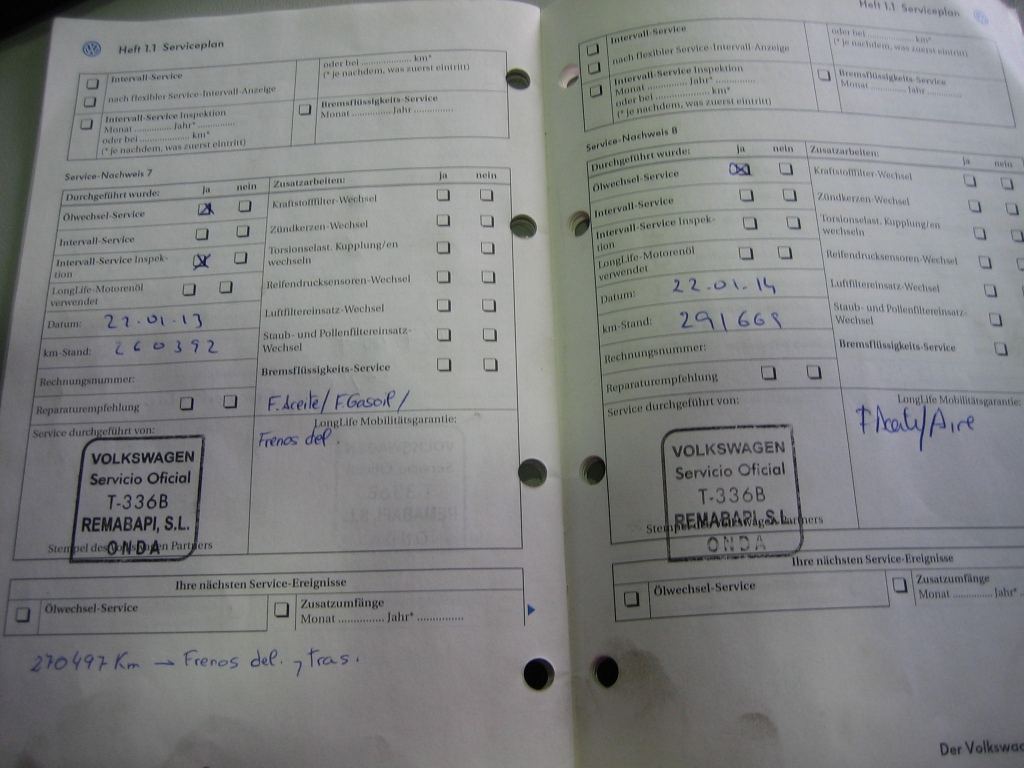 Heft 1.1 Serviceplan
Intervall-Service
nach flexibler Service-Intervall-Anzeige
Intervall-Service Inspektion
Monat ............. Jahr* .............
oder bei .................... km*
(* je nachdem, was zuerst eintritt)
oder bei .................... km*
(* je nachdem, was zuerst eintritt)
Bremsflüssigkeits-Service
Monat ............. Jahr .............
Service-Nachweis 7
Durchgeführt wurde: ja nein
Ölwechsel-Service
Intervall-Service
Intervall-Service Inspek-
tion
LongLife-Motorenöl
verwendet
Datum: 22.01.13
km-Stand: 260392
Rechnungsnummer:
Reparaturempfehlung
Zusatzarbeiten: ja nein
Kraftstofffilter-Wechsel
Zündkerzen-Wechsel
Torsionselast. Kupplung/en
wechseln
Reifendrucksensoren-Wechsel
Luftfiltereinsatz-Wechsel
Staub- und Pollenfiltereinsatz-
Wechsel
Bremsflüssigkeits-Service
F. Aceite/ F. Gasoil/
Service durchgeführt von:
LongLife Mobilitätsgarantie:
Frenos del.
VOLKSWAGEN
Servicio Oficial
T-336B
REMABAPI, S.L.
ONDA
Stempel des Volkswagen Partners
Ihre nächsten Service-Ereignisse
Ölwechsel-Service
Zusatzumfänge
Monat .............. Jahr* ..............
270497 Km → Frenos del. y tras.
Heft 1.1 Serviceplan
Intervall-Service
nach flexibler Service-Intervall-Anzeige
Intervall-Service Inspektion
Monat ............. Jahr* .............
oder bei .................... km*
(* je nachdem, was zuerst eintritt)
oder bei .................... km*
(* je nachdem, was zuerst eintritt)
Bremsflüssigkeits-Service
Monat ............. Jahr .............
Service-Nachweis 8
Durchgeführt wurde: ja nein
Ölwechsel-Service
Intervall-Service
Intervall-Service Inspek-
tion
LongLife-Motorenöl
verwendet
Datum: 22.01.14
km-Stand: 291669
Rechnungsnummer:
Reparaturempfehlung
Zusatzarbeiten: ja nein
Kraftstofffilter-Wechsel
Zündkerzen-Wechsel
Torsionselast. Kupplung/en
wechseln
Reifendrucksensoren-Wechsel
Luftfiltereinsatz-Wechsel
Staub- und Pollenfiltereinsatz-
Wechsel
Bremsflüssigkeits-Service
Service durchgeführt von:
LongLife Mobilitätsgarantie:
F Aceite/Aire
VOLKSWAGEN
Servicio Oficial
T-336B
REMABAPI, S.L.
ONDA
Stempel des Volkswagen Partners
Ihre nächsten Service-Ereignisse
Ölwechsel-Service
Zusatzumfänge
Monat .............. Jahr*
Der Volkswag